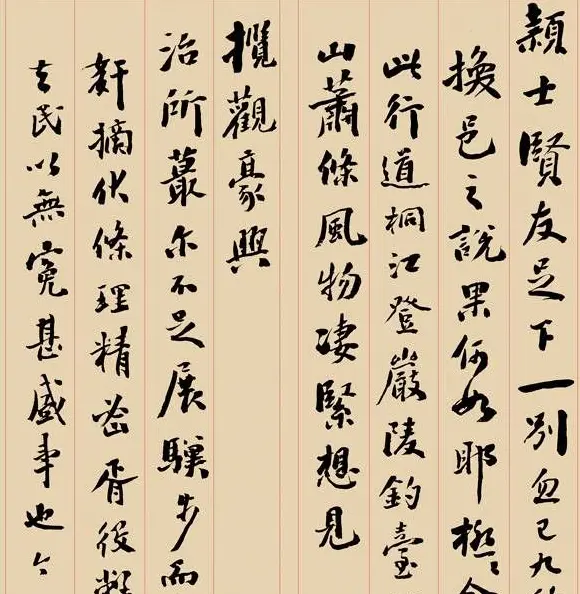 穎士賢友足下一別忽已九
換邑之說果何如耶極〻
此行道桐江登嚴陵釣臺
山蕭條風物凄緊想見
攬觀豪興
治所蕞尔不足展驥步而
奸摘伏條理精密胥役
民以無寃甚盛事也今